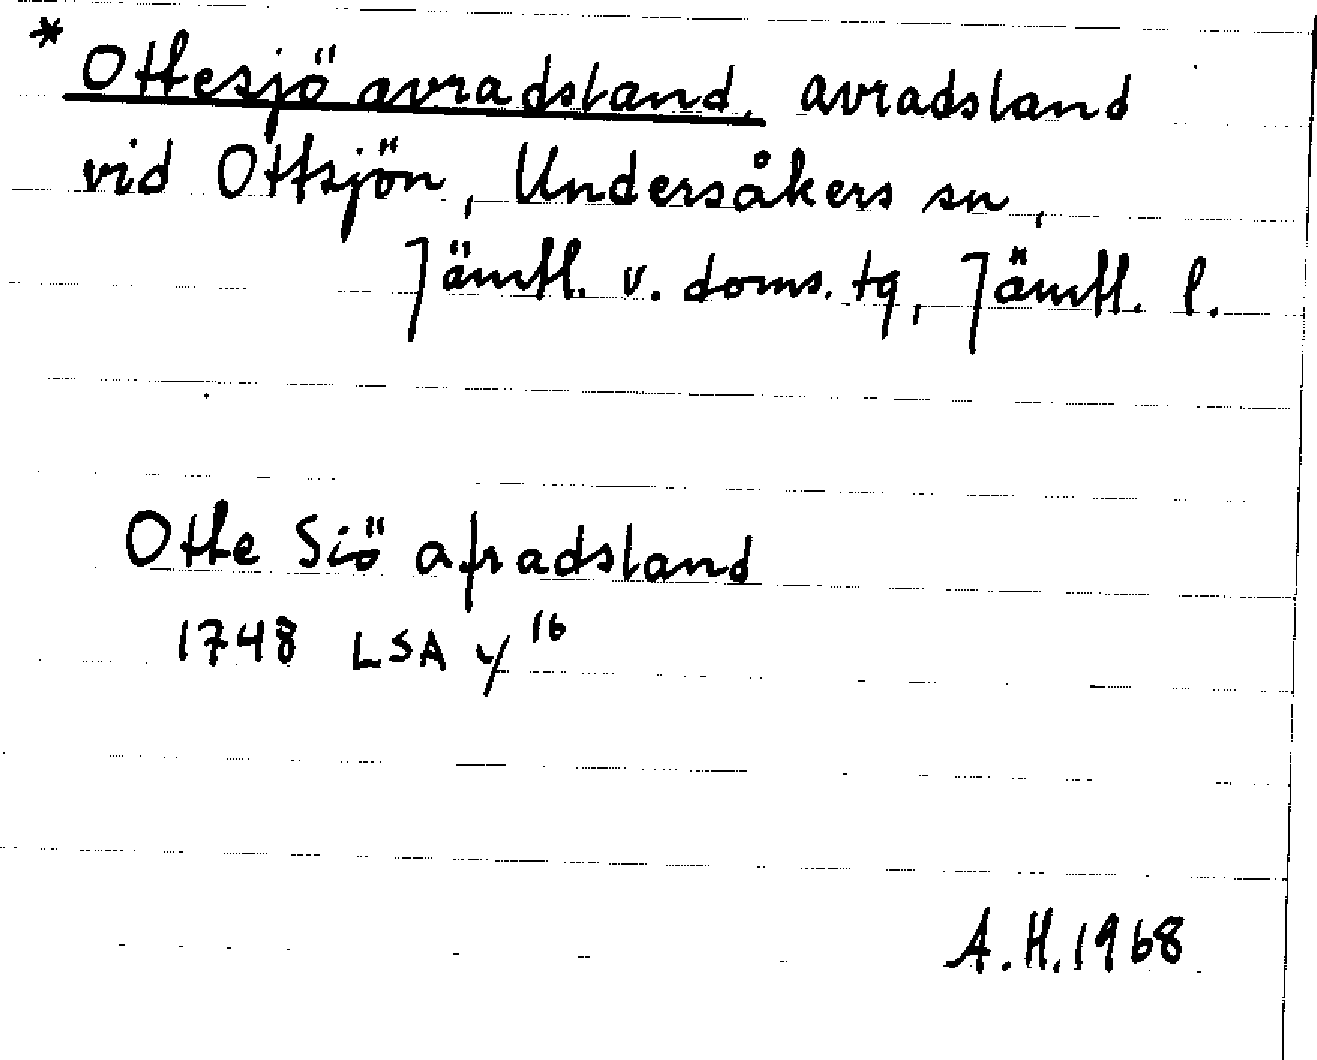 * Ottesjö avradsland, avradsland
vid Ottsjön, Undersåkers sn,
Jämtl. v. doms. tg, Jämtl. l.
Otte Siö afradsland
1748 LSA y¹⁶
A.H. 1968